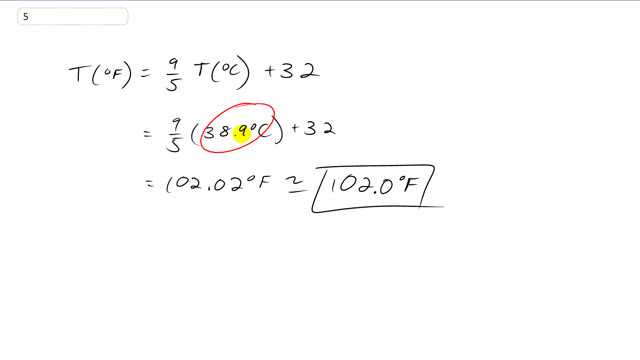 5
T(°F) = 9/5 T(°C) + 32
= 9/5 (38.9°C) + 32
= 102.02°F ≃ 102.0°F